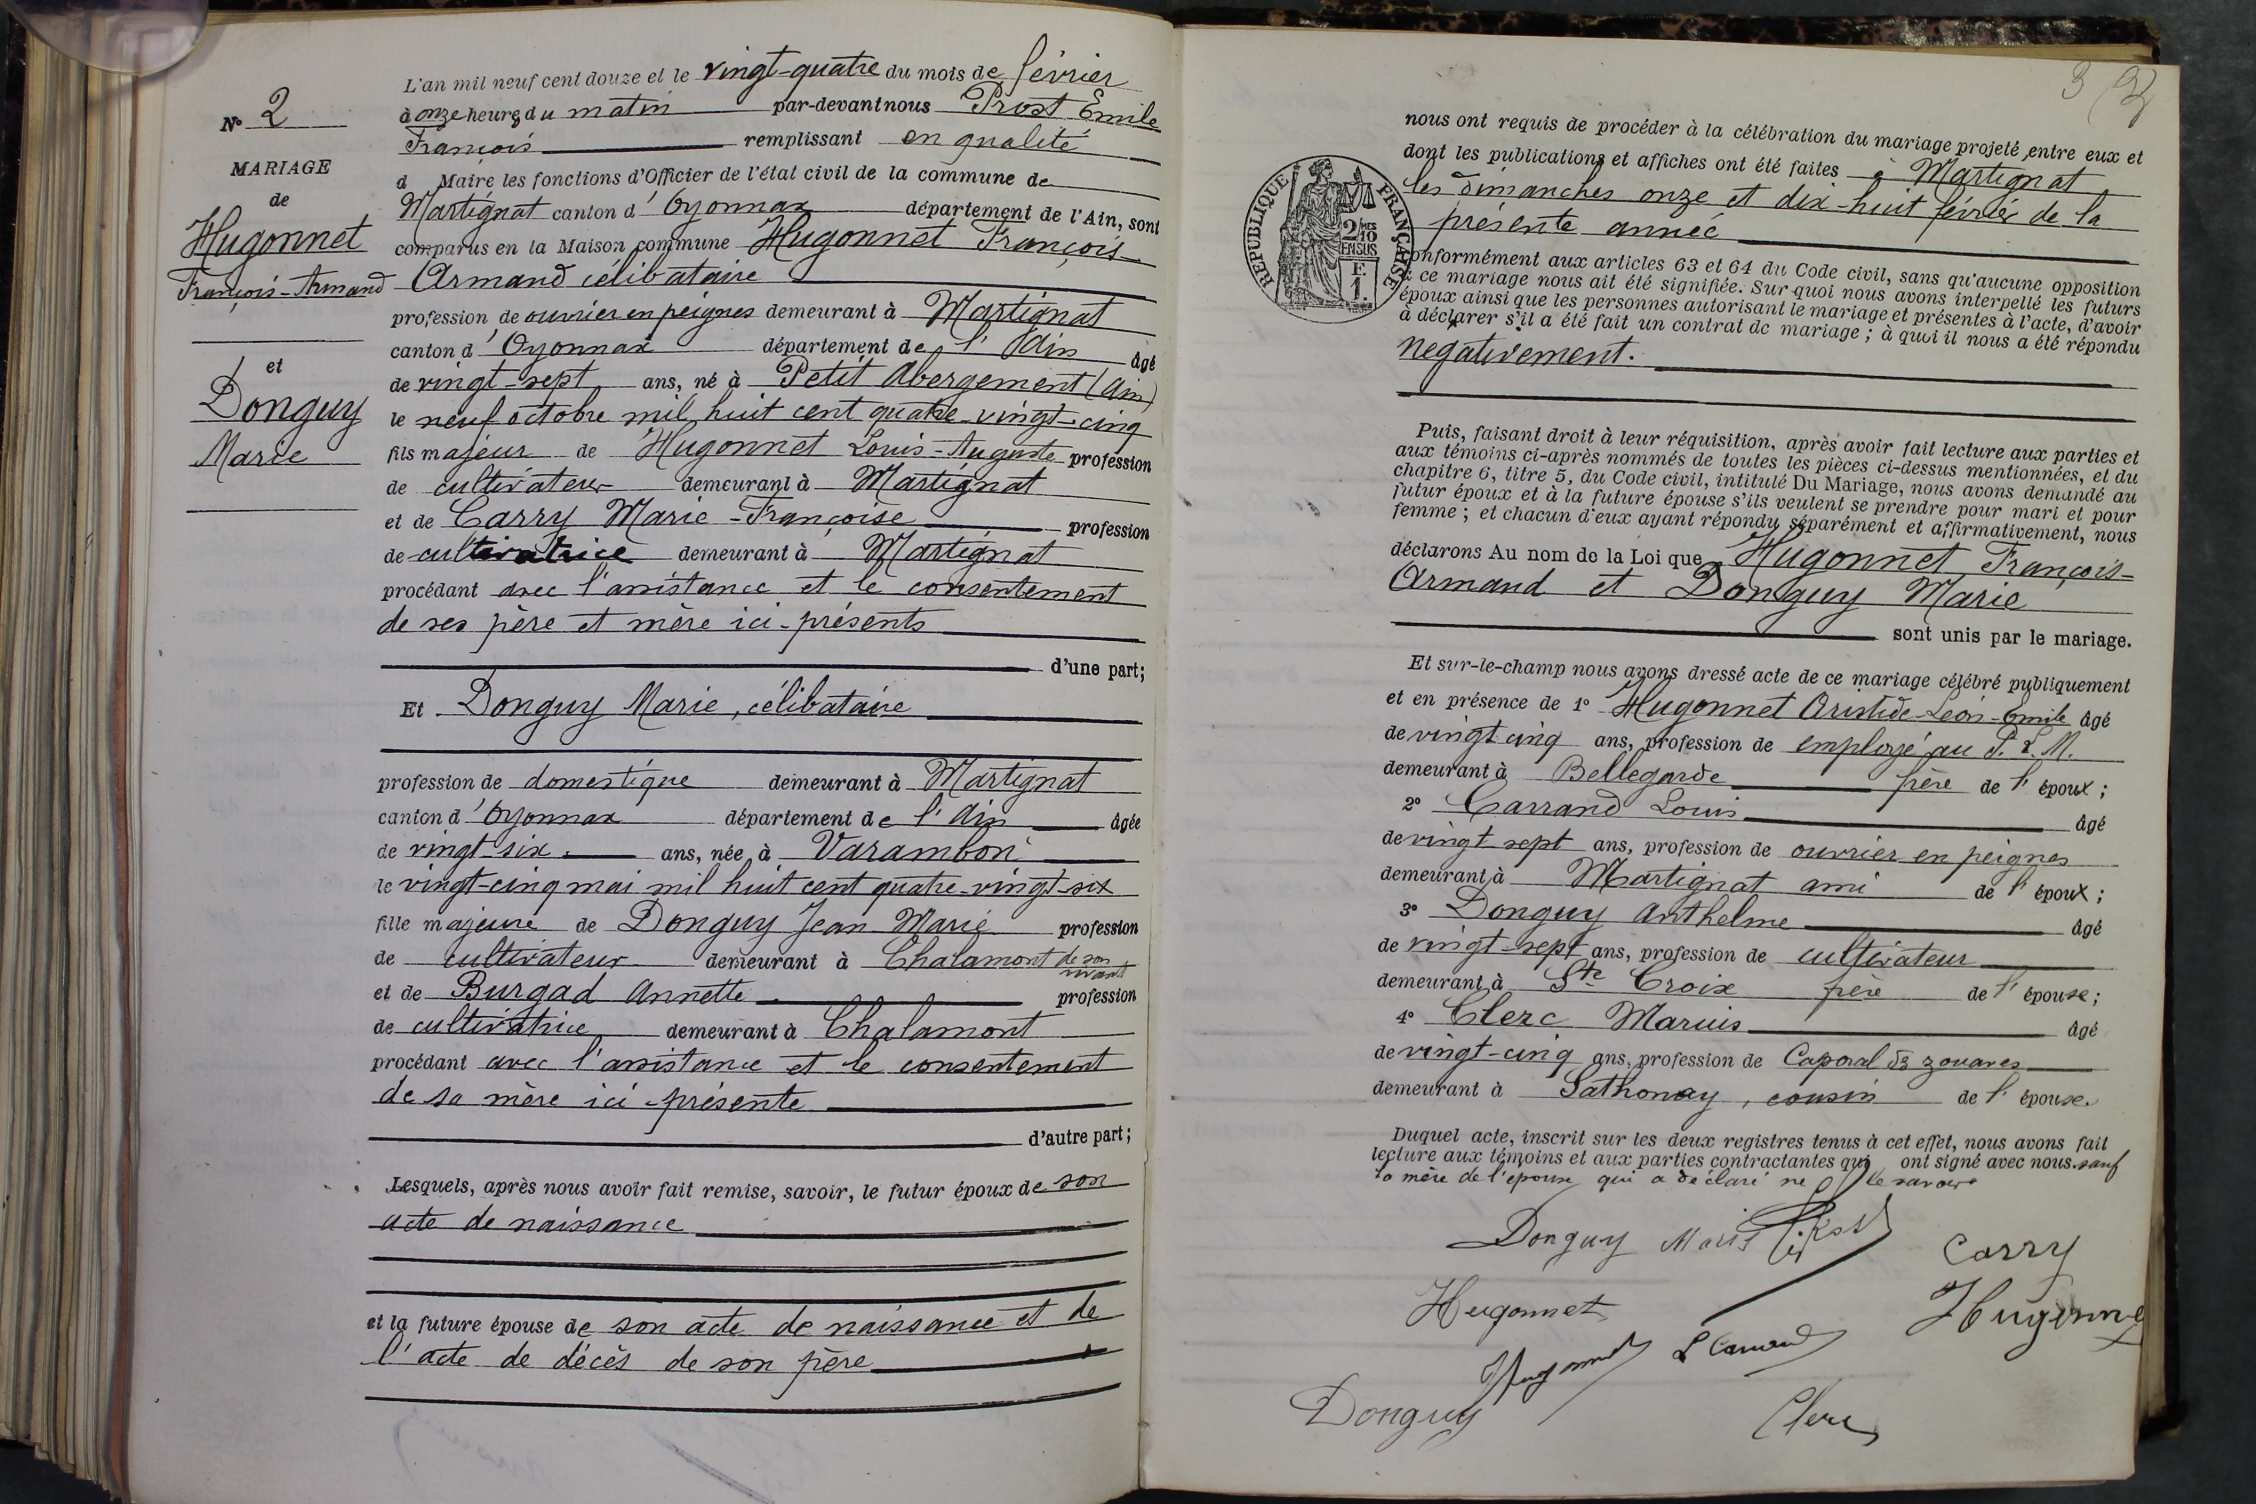 N° 2
MARIAGE
de
Hugonnet
François-Armand
et
Donguy
Marie
L'an mil neuf cent douze et le vingt-quatre du mois de février
à onze heures du matin par-devant nous Prost Emile
François remplissant en qualité
d Maire les fonctions d'Officier de l'état civil de la commune de
Martignat canton d'Oyonnax département de l'Ain, sont
comparus en la Maison commune Hugonnet François-
Armand célibataire
profession de ouvrier en peignes demeurant à Martignat
canton d'Oyonnax département de l'Ain âgé
de vingt-sept ans, né à Petit Abergement (Ain)
le neuf octobre mil huit cent quatre-vingt-cinq
fils majeur de Hugonnet Louis-Auguste profession
de cultivateur demeurant à Martignat
et de Carry Marie-Françoise profession
de cultivatrice demeurant à Martignat
procédant avec l'assistance et le consentement
de ses père et mère ici-présents
d'une part;
Et Donguy Marie, célibataire
profession de domestique demeurant à Martignat
canton d'Oyonnax département de l'Ain âgée
de vingt-six ans, née à Varambon
le vingt-cinq mai mil huit cent quatre-vingt-six
fille majeure de Donguy Jean Marie profession
de cultivateur demeurant à Chalamont de son vivant
et de Burgad Annette profession
de cultivatrice demeurant à Chalamont
procédant avec l'assistance et le consentement
de sa mère ici-présente
d'autre part;
Lesquels, après nous avoir fait remise, savoir, le futur époux de son
acte de naissance
et la future épouse de son acte de naissance et de
l'acte de décès de son père
3
REPUBLIQUE FRANÇAISE
2/10 EN SUS
F. 1.
nous ont requis de procéder à la célébration du mariage projeté entre eux et
dont les publications et affiches ont été faites à Martignat
les dimanches onze et dix-huit février de la
présente année
conformément aux articles 63 et 64 du Code civil, sans qu'aucune opposition
à ce mariage nous ait été signifiée. Sur quoi nous avons interpellé les futurs
époux ainsi que les personnes autorisant le mariage et présentes à l'acte, d'avoir
à déclarer s'il a été fait un contrat de mariage; à quoi il nous a été répondu
négativement.
Puis, faisant droit à leur réquisition, après avoir fait lecture aux parties et
aux témoins ci-après nommés de toutes les pièces ci-dessus mentionnées, et du
chapitre 6, titre 5, du Code civil, intitulé Du Mariage, nous avons demandé au
futur époux et à la future épouse s'ils veulent se prendre pour mari et pour
femme; et chacun d'eux ayant répondu séparément et affirmativement, nous
déclarons Au nom de la Loi que Hugonnet François-
Armand et Donguy Marie
sont unis par le mariage.
Et sur-le-champ nous avons dressé acte de ce mariage célébré publiquement
et en présence de 1° Hugonnet Aristide-Léon-Emile âgé
de vingt cinq ans, profession de employé au P. L. M.
demeurant à Bellegarde frère de l'époux;
2° Carrand Louis âgé
de vingt sept ans, profession de ouvrier en peignes
demeurant à Martignat ami de l'époux;
3° Donguy Anthelme âgé
de vingt-sept ans, profession de cultivateur
demeurant à Ste Croix frère de l'épouse;
4° Clerc Marius âgé
de vingt-cinq ans, profession de Caporal de zouaves
demeurant à Sathonay, cousin de l'épouse.
Duquel acte, inscrit sur les deux registres tenus à cet effet, nous avons fait
lecture aux témoins et aux parties contractantes qui ont signé avec nous. sauf
la mère de l'épouse qui a déclaré ne le savoir
Donguy Marie Prost Carry
Hugonnet Hugonnet
Hugonnet L Carrand
Donguy Clerc